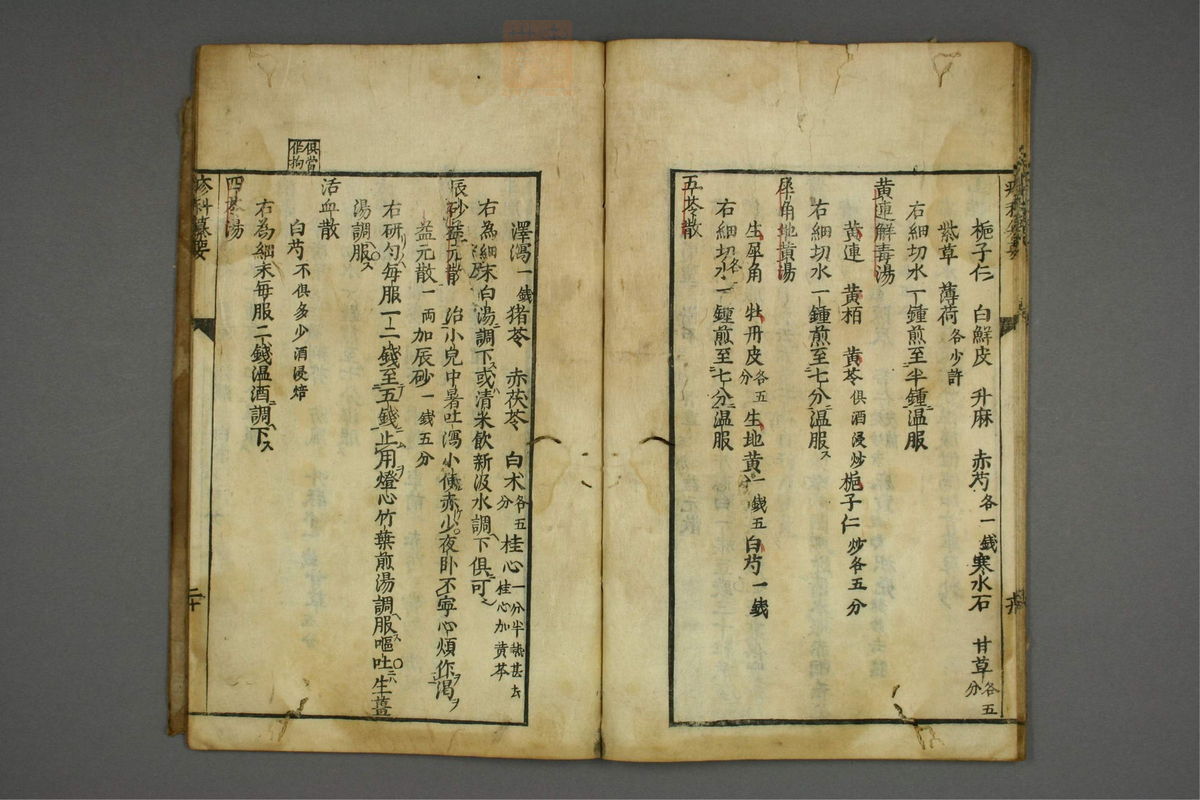 梔子仁 白鮮皮 升麻 赤芍各一錢寒水石 甘草各五分
紫草 薄荷各少許
右細切水一鍾煎至半鍾温服
黄連解毒湯
黄連 黄栢 黄芩俱酒浸炒梔子仁炒各五分
右細切水一鍾煎至七分温服ス
犀角地黄湯
生犀角 牡丹皮各五分 生地黄一錢五分 白芍一錢
右細切水一鍾煎至七分温服
五苓散
澤瀉一錢猪苓 赤茯苓 白术各五分 桂心一分半熱甚去桂心加黄芩
右為細末白湯調下或清米飲新汲水調下俱可
辰砂益元散 治小兒中暑吐瀉小便赤少夜卧不寧心煩作渴
益元散一両加辰砂一錢五分
右研勻毎服一二錢至五錢止用燈心竹葉煎湯調服嘔吐生薑
湯調服ス
活血散
白芍不俱多少酒浸焙
右為細末毎服二錢温酒調下ス
四苓湯
俱當作拘
疹科纂要
二十